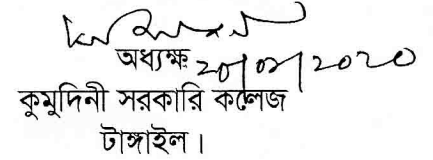 অধ্যক্ষ 20/02/2020
কুমুদিনী সরকারি কলেজ
টাঙ্গাইল।